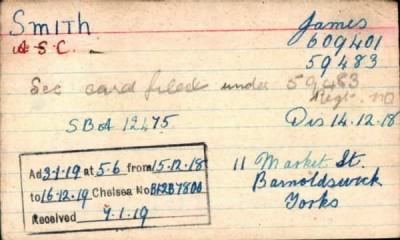 Smith James
A.S.C. 609401
59483
See card filed under 59483
Regt. no
SBA 12475 Dis 14.12.18
Ad 3-1-19 at 5.6 from 15.12.18
to 16-12.19 Chelsea No
Received 7.1.19
11 Market St.
Barnoldswick
Yorks